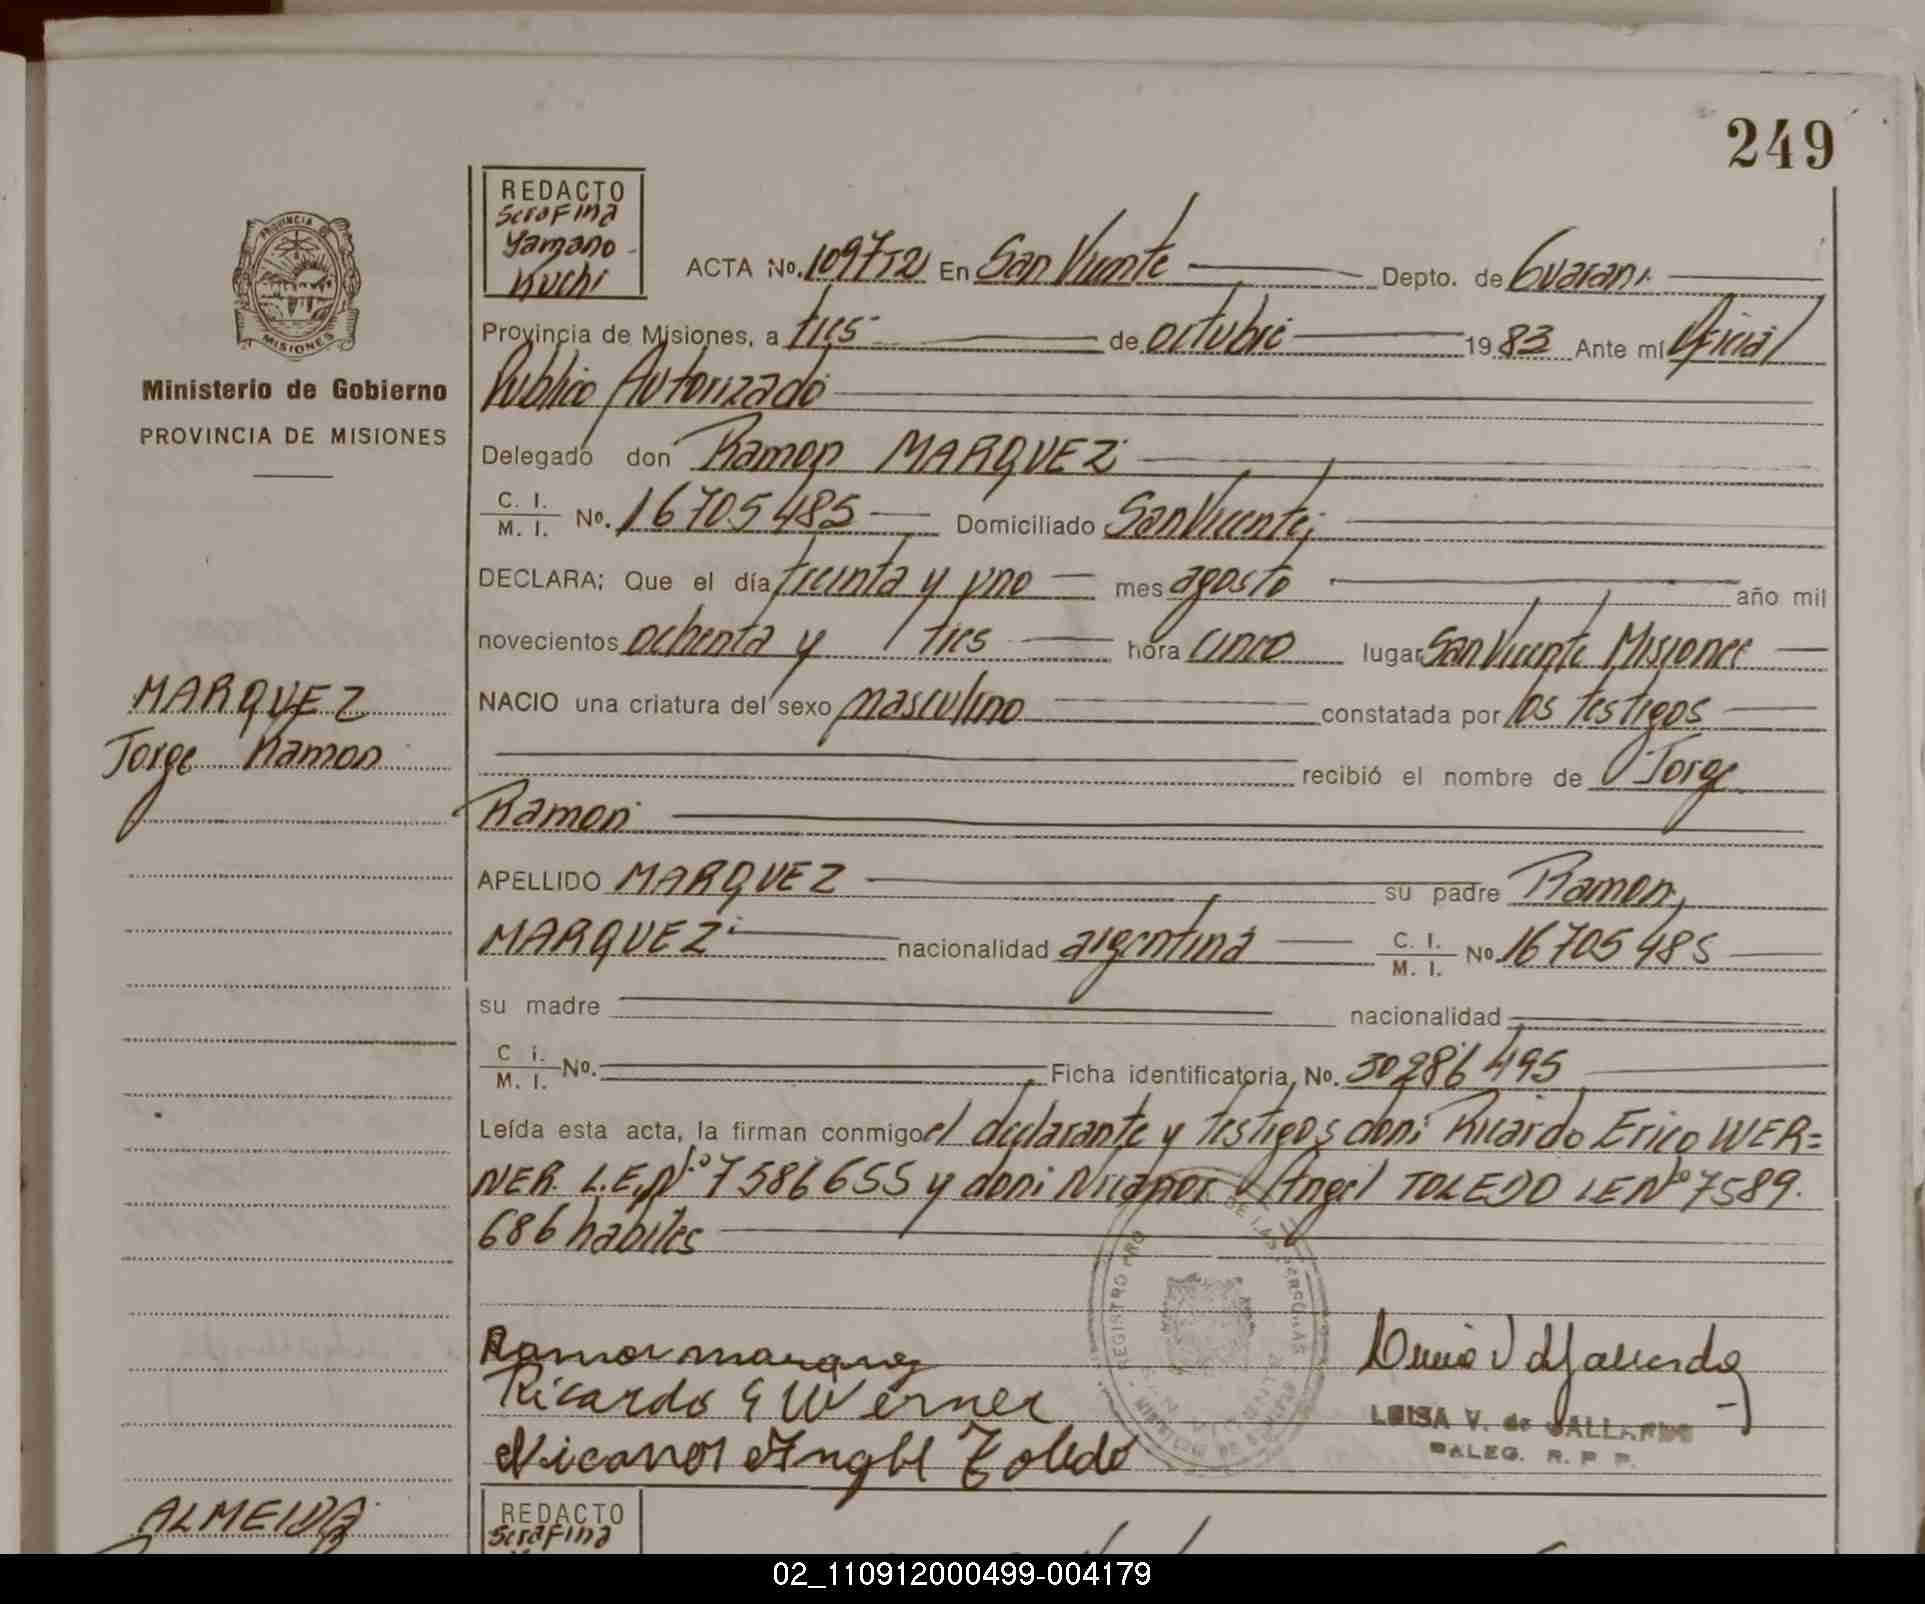 249
REDACTO
Serafina
Yamano
Kuchi
PROVINCIA DE
MISIONES
Ministerio de Gobierno
PROVINCIA DE MISIONES
ACTA No. 1097T2 En San Vicente Depto. de Guarani
Provincia de Misiones, a tres de octubre 1983 Ante mí Oficial
Publico Autorizado
Delegado don Ramon MARQUEZ
C. I. / M. I. No. 16705485 Domiciliado San Vicente;
DECLARA: Que el día treinta y uno mes agosto año mil
novecientos ochenta y tres hora cinco lugar San Vicente Misiones
NACIO una criatura del sexo masculino constatada por los testigos
recibió el nombre de Jorge
Ramon
APELLIDO MARQUEZ su padre Ramon
MARQUEZ nacionalidad argentina C. I. / M. I. No 16705485
su madre nacionalidad
C i. / M. I. No. Ficha identificatoria, No. 30286495
Leída esta acta, la firman conmigo el declarante y testigos don: Ricardo Erico WER=
NER L.E.Nº 7586655 y don: Nicanor Angel TOLEDO LE Nº 7589.
686 habiles
MARQUEZ
Jorge Ramon
Ramon marquez
Ricardo E Werner
Nicanor Angel Toledo
LUISA V. de GALLARDO
DALEG. R. P. P.
REGISTRO PRO DE LAS PERSONAS
ALMEIDA
REDACTO
Serafina
02_110912000499-004179